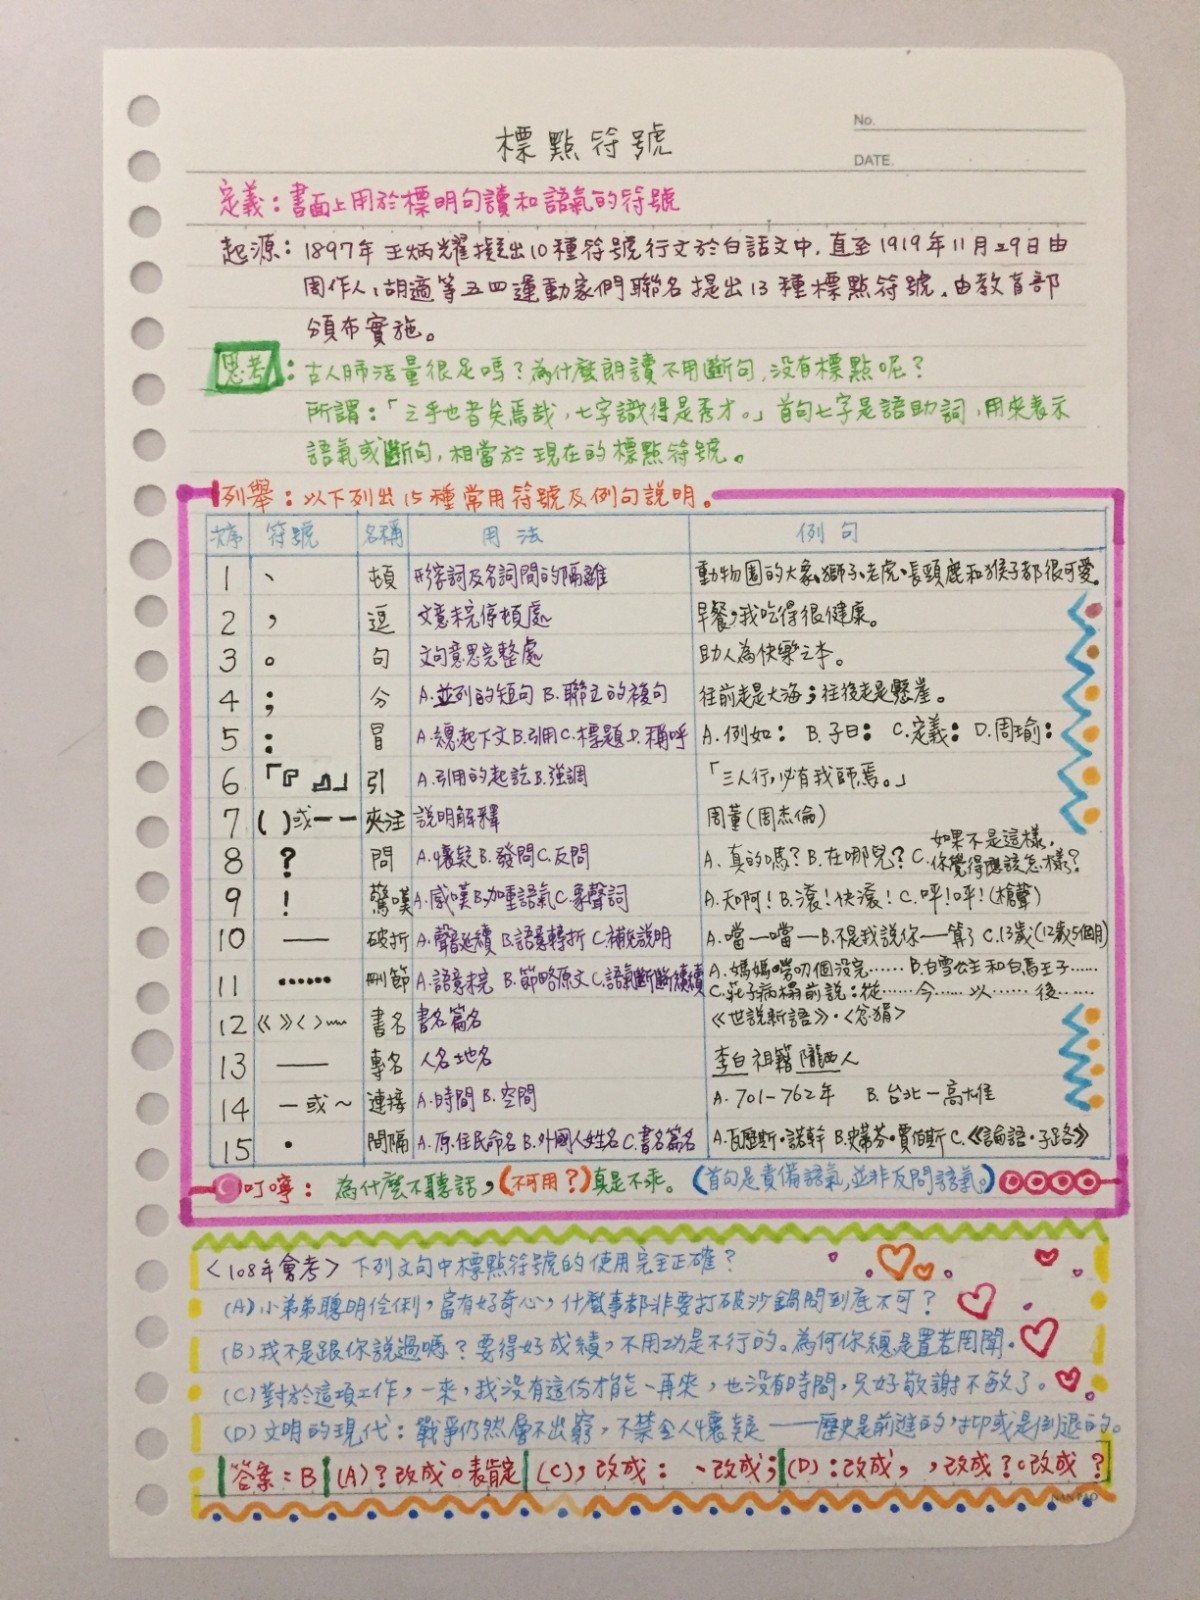 No.
標點符號
DATE.
定義：書面上用於標明句讀和語氣的符號
起源：1897年王炳耀擬出10種符號行文於白話文中，直至1919年11月29日由
周作人、胡適等五四運動家們聯名提出13種標點符號，由教育部
頒布實施。
思考：古人肺活量很足嗎？為什麼朗讀不用斷句，沒有標點呢？
所謂：「之乎也者矣焉哉，七字識得是秀才。」首句七字是語助詞，用來表示
語氣或斷句，相當於現在的標點符號。
列舉：以下列出15種常用符號及例句說明。
次序 符號 名稱 用法 例句
1 、 頓 形容詞及名詞間的隔離 動物園的大象、獅子、老虎、長頸鹿和猴子都很可愛。
2 ， 逗 文意未完停頓處 早餐，我吃得很健康。
3 。 句 文句意思完整處 助人為快樂之本。
4 ； 分 A.並列的短句 B.聯立的複句 往前走是大海；往後走是懸崖。
5 ： 冒 A.總起下文 B.引用 C.標題 D.稱呼 A.例如： B.子曰： C.定義： D.周瑜：
6 「『 』」 引 A.引用的起訖 B.強調 「三人行，必有我師焉。」
7 ( )或－－ 夾注 說明解釋 周董(周杰倫)
8 ？ 問 A.懷疑 B.發問 C.反問 A.真的嗎？ B.在哪兒？ C.如果不是這樣，你覺得應該怎樣？
9 ！ 驚嘆 A.感嘆 B.加重語氣 C.象聲詞 A.天啊！ B.滾！快滾！ C.呯！呯！(槍聲)
10 —— 破折 A.聲音延續 B.語意轉折 C.補充說明 A.噹—噹— B.不是我說你——算了 C.13歲(12歲5個月)
11 …… 刪節 A.語意未完 B.節略原文 C.語氣斷斷續續 A.媽媽嘮叨個沒完…… B.白雪公主和白馬王子……
C.莊子病榻前說：從……今……以……後……
12 《 》〈 〉﹏﹏ 書名 書名篇名 《世說新語》·〈忿狷〉
13 —— 專名 人名地名 李白祖籍隴西人
14 －或～ 連接 A.時間 B.空間 A. 701－762年 B.台北－高雄
15 · 間隔 A.原住民命名 B.外國人姓名 C.書名篇名 A.瓦歷斯·諾幹 B.史蒂芬·賈伯斯 C.《論語·子路》
叮嚀：為什麼不聽話，(不可用？)真是不乖。(首句是責備語氣，並非反問語氣。)
〈108年會考〉下列文句中標點符號的使用完全正確？
(A)小弟弟聰明伶俐，富有好奇心，什麼事都非要打破沙鍋問到底不可？
(B)我不是跟你說過嗎？要得好成績，不用功是不行的。為何你總是置若罔聞。
(C)對於這項工作，一來，我沒有這份才能、再來，也沒有時間，只好敬謝不敏了。
(D)文明的現代：戰爭仍然層不出窮，不禁令人懷疑——歷史是前進的，抑或是倒退的。
答案：B (A)？改成。表肯定 (C)，改成： 、改成； (D)：改成， ，改成？。改成？
NAN PAO